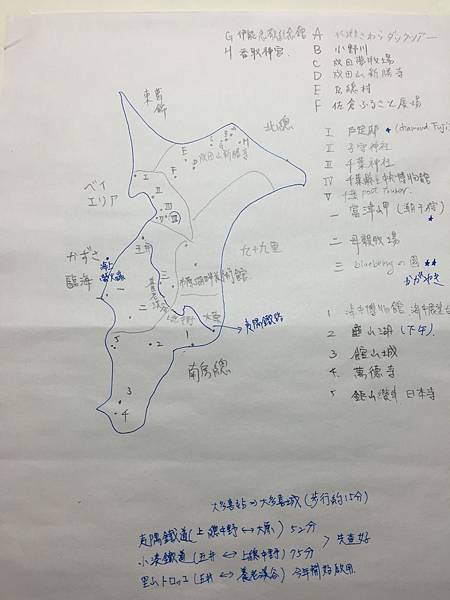 G 伊能忠敬記念館
H 香取神宮
A 水郷さわらダックツアー
B 小野川
C 成田夢牧場
D 成田山新勝寺
E 房總村
F 佐倉ふるさと広場
I 戸定邸 ★(diamond Fuji)
II 子守神社
III 千葉神社
IV 千葉縣立中央博物館
V 千葉 port Tower.
一 富津岬 (潮干狩) ★
二 母親牧場
三 blueberry の園 ★★
かがやき
1 海中博物館 海中展望台
2 鹿山湖 (下午)
3 館山城
4 萬德寺
5 鋸山 日本寺
東葛飾
北總
成田山新勝寺
ベイエリア
かずさ臨海
海上
五井
九十九里
市原湖畔美術館
養老渓谷
中野
大原
夷隅鐵路
南房總
大多喜站→大多喜城 (步行約15分)
夷隅鐵道 (上總中野 ↔ 大原) 52分
小湊鐵道 (五井 ↔ 上總中野) 75分
> 先查好
里山トロッコ (五井 ↔ 養老渓谷) 今年開始啟用.